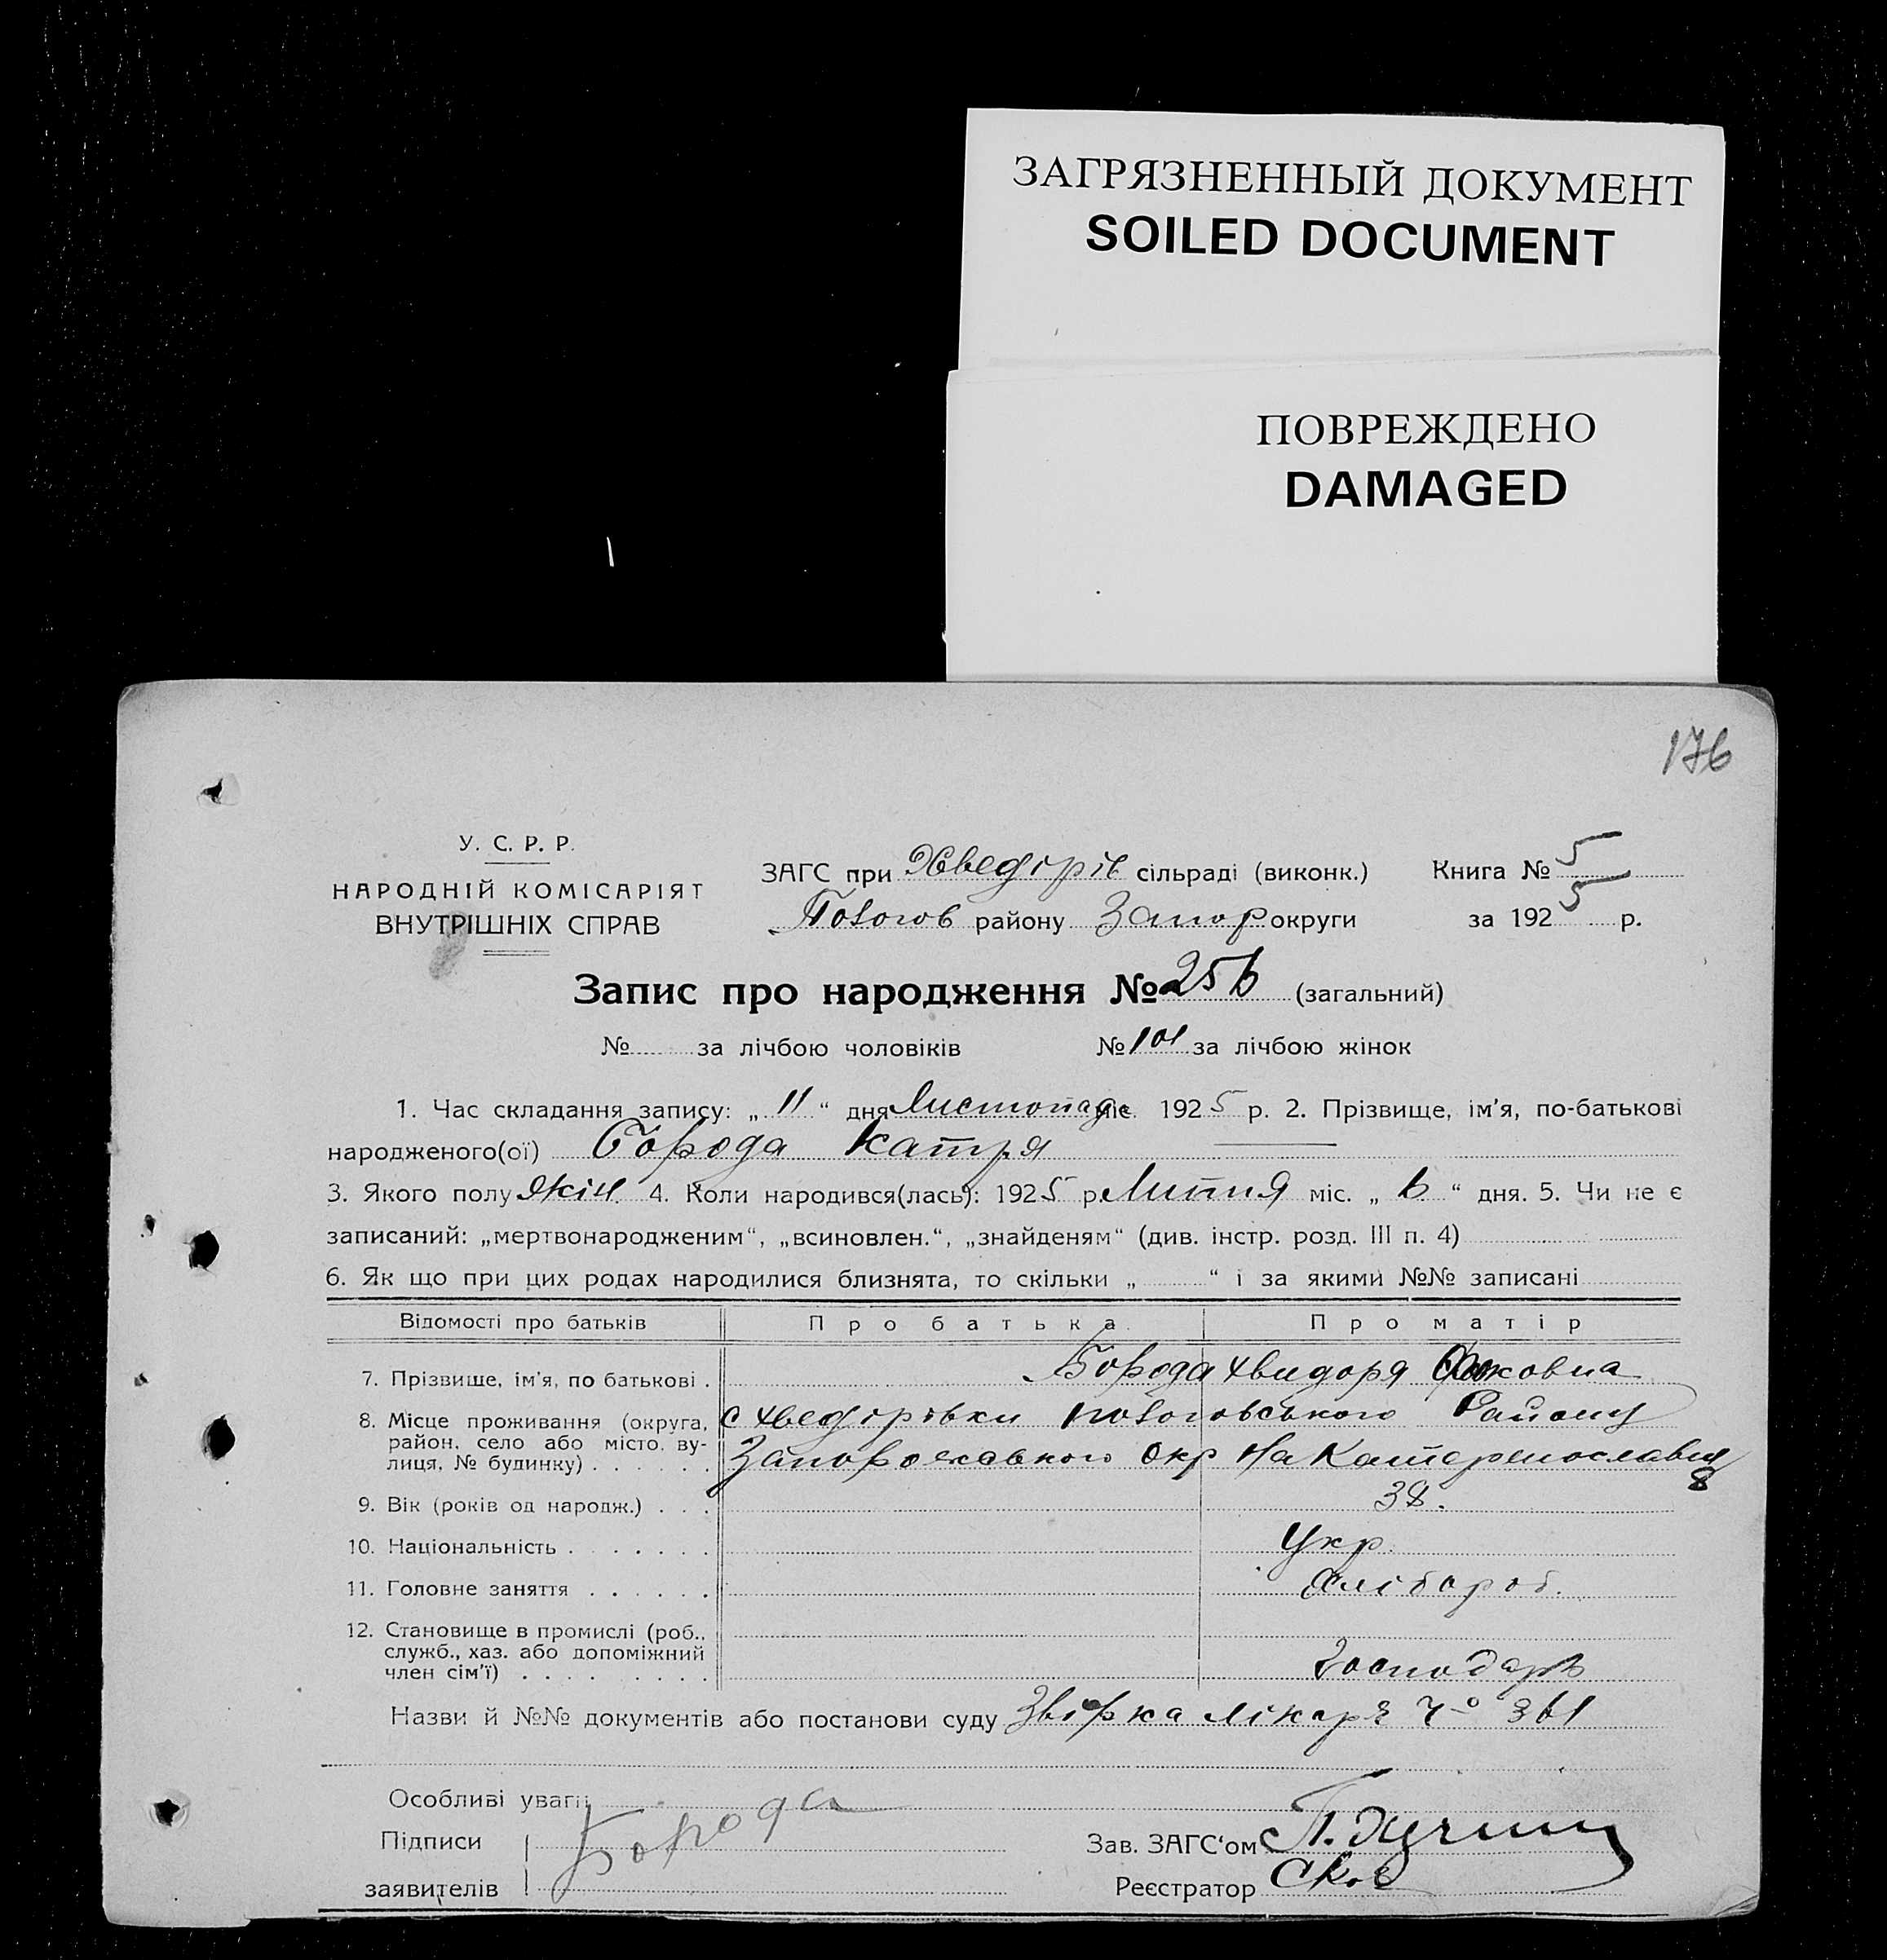 ЗАГРЯЗНЕННЫЙ ДОКУМЕНТ
SOILED DOCUMENT
ПОВРЕЖДЕНО
DAMAGED
176
У. С. Р. Р.
НАРОДНІЙ КОМІСАРІЯТ
ВНУТРІШНІХ СПРАВ
ЗАГС при Хведірів сільраді (виконк.) Книга № 5
Пологов району Запор округи за 1925 р.
Запис про народження № 256 (загальний)
№ за лічбою чоловіків № 101 за лічбою жінок
1. Час складання запису: „ 11 “ дня Листопада міс. 1925 р. 2. Прізвище, ім'я, по-батькові
народженого(ої) Борода Катря
3. Якого полу жін. 4. Коли народився(лась): 1925 р. Липня міс. „ 6 “ дня. 5. Чи не є
записаний: „мертвонародженим“, „всиновлен.“, „знайденям“ (див. інстр. розд. III п. 4)
6. Як що при цих родах народилися близнята, то скільки „ “ і за якими №№ записані
Відомості про батьків Про батька Про матір
7. Прізвище, ім'я, по батькові . Борода Хвидоря
8. Місце проживання (округа, с Хведірівки Пологовського Району
район, село або місто, ву-
лиця, № будинку) . . . . . . Запорожського Окр На Катеренославня
8
9. Вік (років од народж.) . . . 38.
10. Національність . . . . . . . Укр.
11. Головне заняття . . . . . . Хлібороб.
12. Становище в промислі (роб.,
служб., хаз. або допоміжний
член сім'ї) . . . . . . . . . Господарь
Назви й №№ документів або постанови суду лікаря 361
Особливі уваги
Підписи Борода Зав. ЗАГС'ом
заявителів Реєстратор